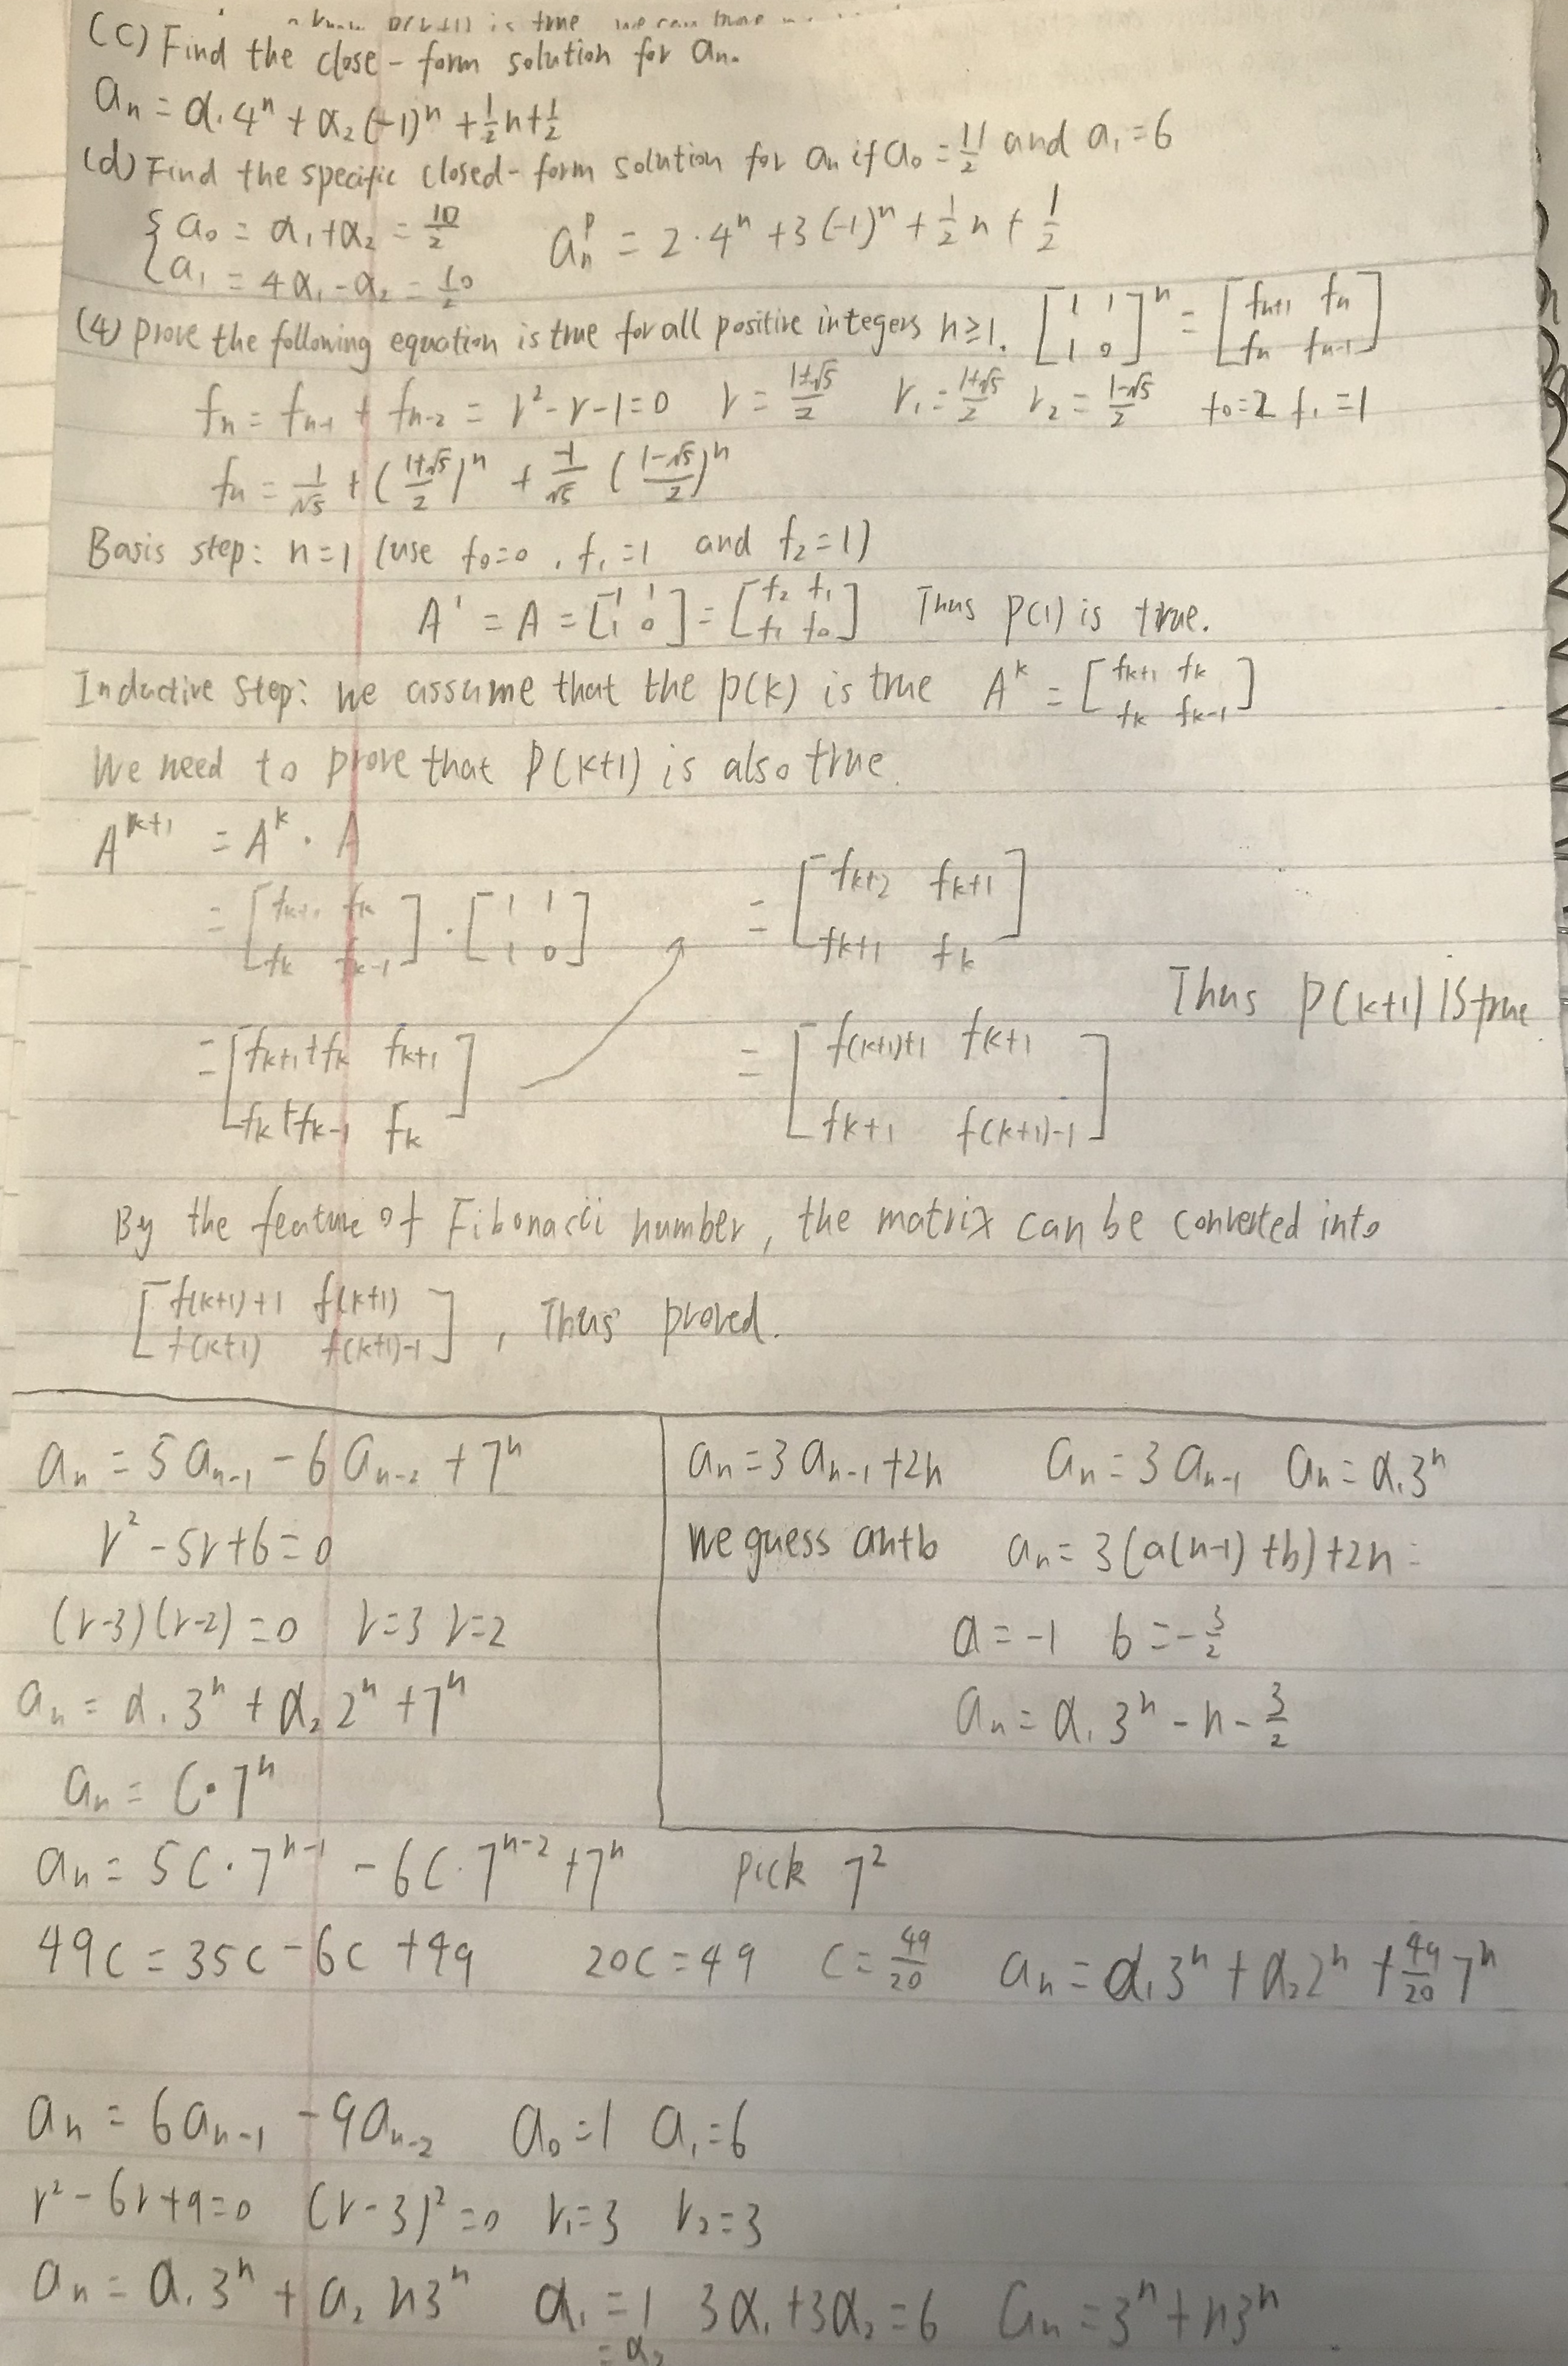 is true we can
(c) Find the close-form solution for an.
an = α₁4ⁿ + α₂(-1)ⁿ + 1/2 n + 1/2
(d) Find the specific closed-form solution for an if a₀ = 11/2 and a₁ = 6
{ a₀ = α₁ + α₂ = 10/2
a₁ = 4α₁ - α₂ = 10/2
aₙᵖ = 2·4ⁿ + 3(-1)ⁿ + 1/2 n + 1/2
(4) prove the following equation is true for all positive integers n≥1. [1 1; 1 0]ⁿ = [fn+1 fn; fn fn-1]
fn = fn-1 + fn-2 = r² - r - 1 = 0 r = (1±√5)/2 r₁ = (1+√5)/2 r₂ = (1-√5)/2 f₀=2 f₁=1
fn = 1/√5 + ((1+√5)/2)ⁿ + -1/√5 ((1-√5)/2)ⁿ
Basis step: n=1 (use f₀=0, f₁=1 and f₂=1)
A¹ = A = [1 1; 1 0] = [f₂ f₁; f₁ f₀] Thus p(1) is true.
Inductive step: we assume that the p(k) is true Aᵏ = [fk+1 fk; fk fk-1]
We need to prove that P(k+1) is also true.
Aᵏ⁺¹ = Aᵏ · A
= [fk+1 fk; fk fk-1] · [1 1; 1 0]
= [fk+1+fk fk+1; fk+fk-1 fk]
= [fk+2 fk+1; fk+1 fk]
= [f(k+1)+1 fk+1; fk+1 f(k+1)-1]
Thus P(k+1) is true
By the feature of Fibonacci number, the matrix can be converted into
[f(k+1)+1 f(k+1); f(k+1) f(k+1)-1], Thus proved.
an = 5an-1 - 6an-2 + 7ⁿ
r² - 5r + 6 = 0
(r-3)(r-2) = 0 r=3 r=2
an = α₁3ⁿ + α₂2ⁿ + 7ⁿ
an = C·7ⁿ
an = 3an-1 + 2n an = 3an-1 an = α₁3ⁿ
we guess an+b an = 3(a(n-1)+b)+2n =
a = -1 b = -3/2
an = α₁3ⁿ - n - 3/2
an = 5C·7ⁿ⁻¹ - 6C·7ⁿ⁻² + 7ⁿ pick 7²
49C = 35C - 6C + 49 20C = 49 C = 49/20 an = α₁3ⁿ + α₂2ⁿ + 49/20 7ⁿ
an = 6an-1 - 9an-2 a₀=1 a₁=6
r² - 6r + 9 = 0 (r-3)² = 0 r₁=3 r₂=3
an = a₁3ⁿ + a₂n3ⁿ α₁ = 1 3α₁+3α₂=6 an = 3ⁿ+n3ⁿ
= α₂